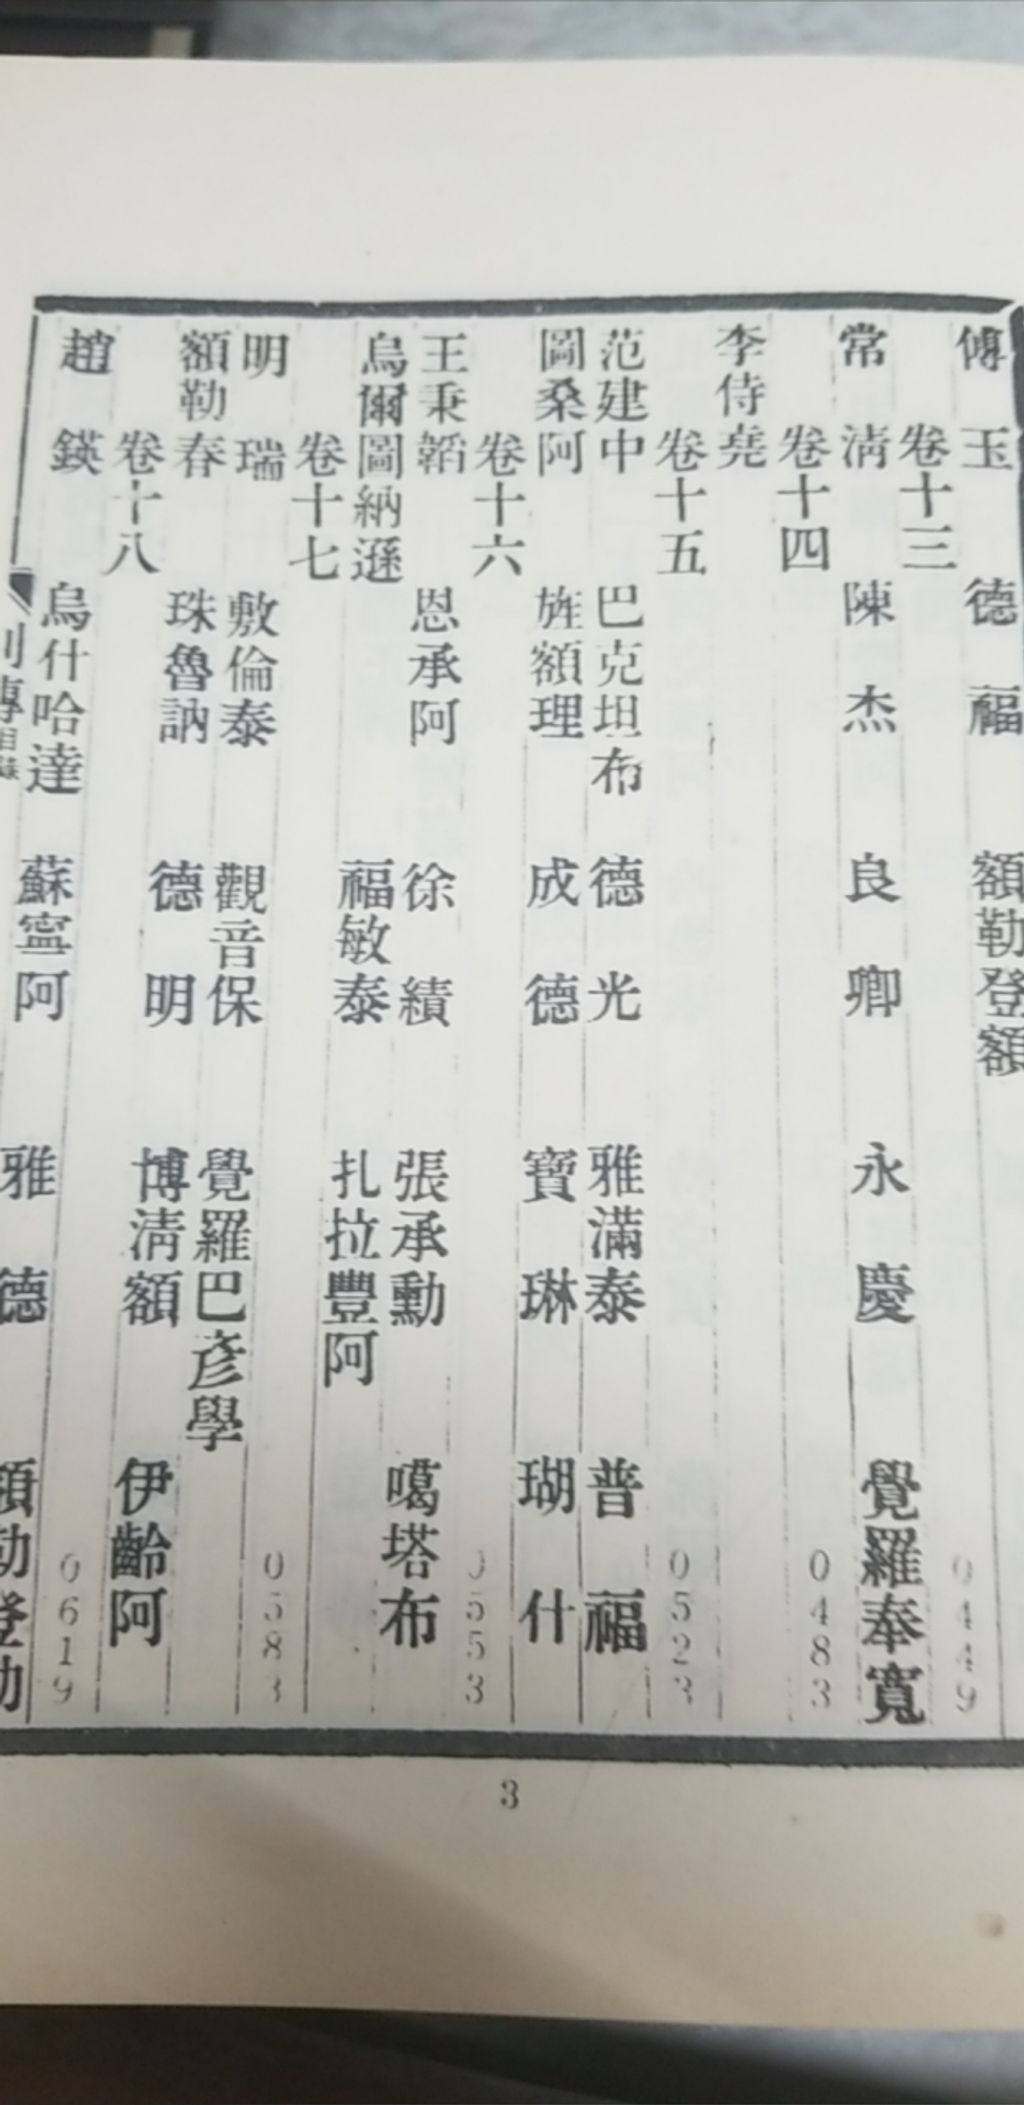 傅玉 德福 額勒登額
卷十三 0449
常淸 陳杰 良卿 永慶 覺羅奉寬
卷十四 0483
李侍堯
卷十五 0523
范建中 巴克坦布 德光 雅滿泰 普福
圖桑阿 旌額理 成德 寶琳 瑚什
卷十六 0553
王秉韜 恩承阿 徐績 張承勳 噶塔布
烏爾圖納遜 福敏泰 扎拉豐阿
卷十七 0583
明瑞 敷倫泰 觀音保 覺羅巴彥學
額勒春 珠魯訥 德明 博淸額 伊齡阿
卷十八 0619
趙鍈 烏什哈達 蘇寧阿 雅德 額勒登
列傳目錄
3